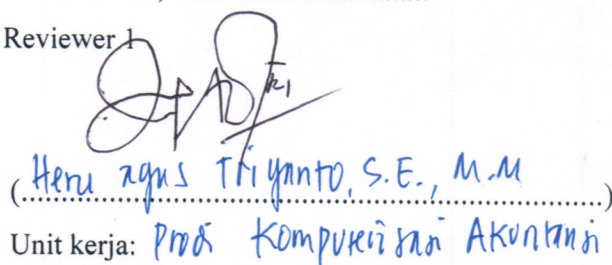 Reviewer 1
(Heru Agus Triyanto, S.E., M.M)
Unit kerja: Prodi Komputerisasi Akuntansi